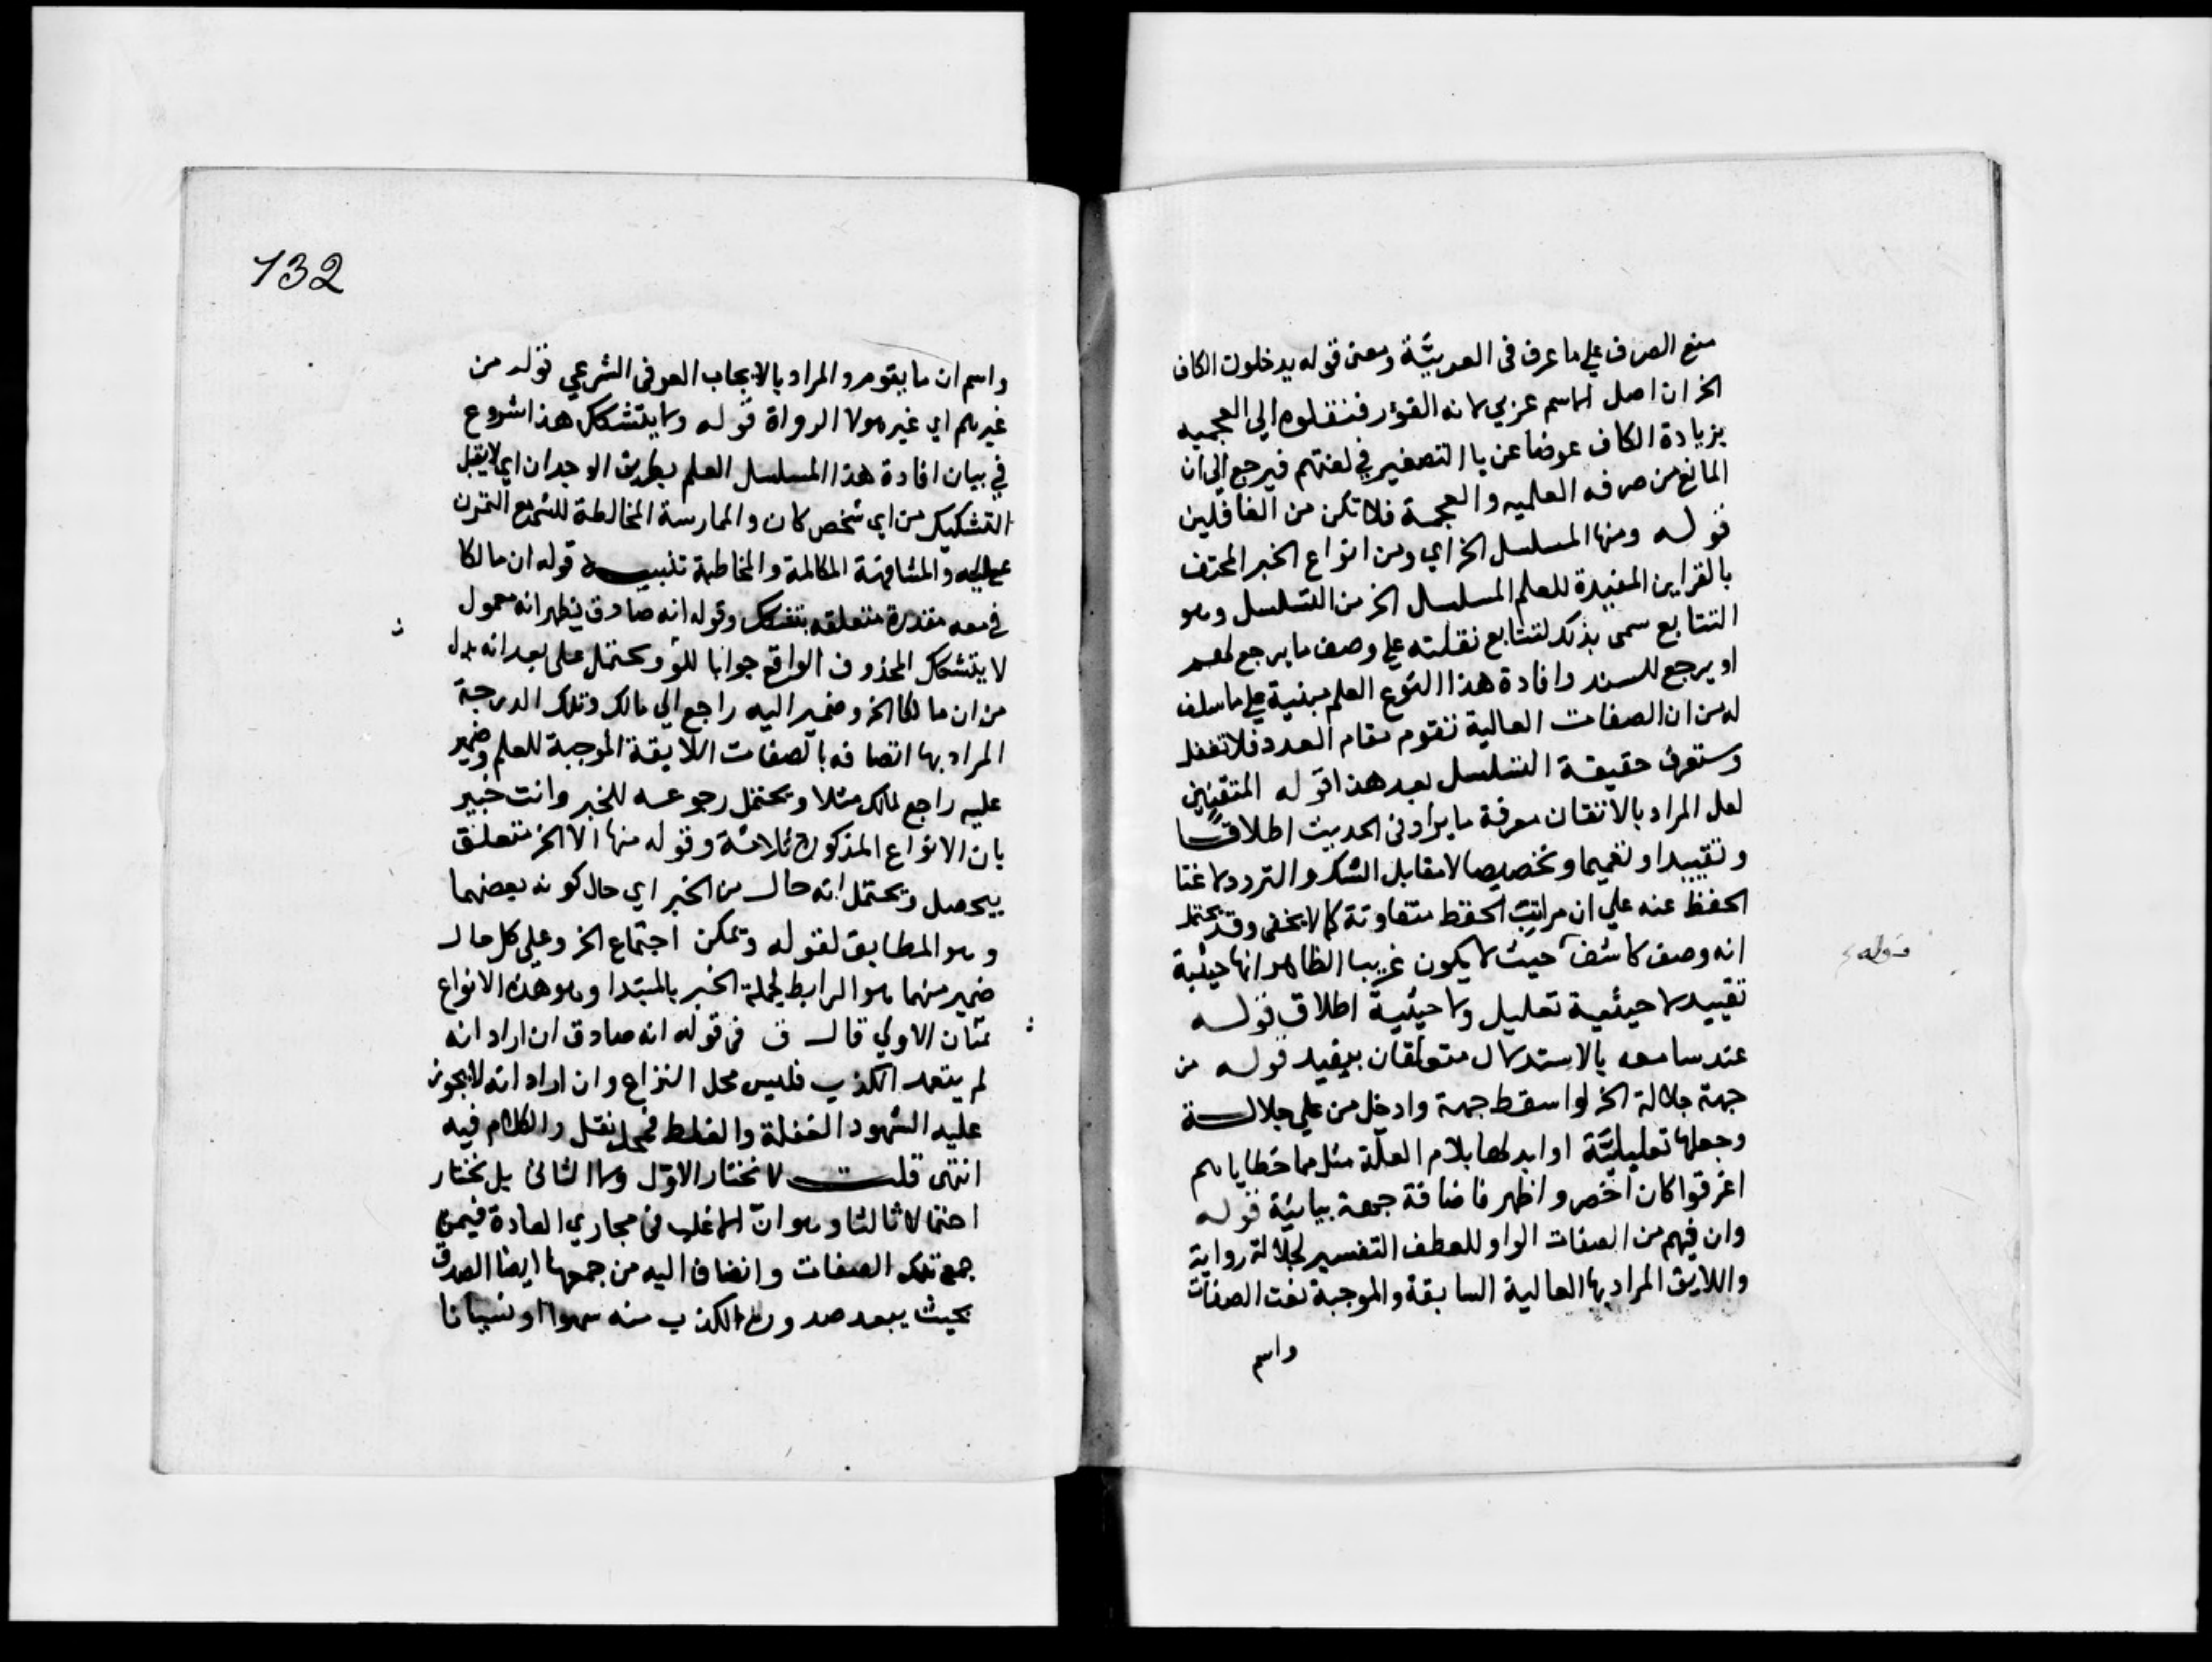 منع الصرف علي ما عرف في العربيّة ومعنى قوله يدخلون الكاف
الخ ان اصل الاسم عربي لانه الفؤر فنقلوه الي العجميه
بزيادة الكاف عوضا عن يا التصغير في لغتهم فيرجع الي ان
المانع من صرفه العلميه والعجمة فلا تكن من الغافلين
قوله ومنها المسلسل الخ اي ومن انواع الخبر المحتف
بالقراين المفيدة للعلم المسلسل الخ من التسلسل وهو
التتابع سمى بذلك لتتابع نقلته علي وصف ما يرجع لهم
او يرجع للسند وافادة هذا النوع العلم مبنية علي ما سلف
له من ان الصفات العالية تقوم مقام العدد فلا تغفل
وستعرف حقيقة التسلسل بعد هذا قوله المتقنين
لعل المراد بالاتقان معرفة ما يراد في الحديث اطلاقًا
وتقييدا وتعميما وتخصيصا لا مقابل الشك والتردد لاغنا
الحفظ عنه علي ان مراتب الحفظ متفاوتة كما لا يخفى وقد يحتمل
انه وصف كاشف حيث لا يكون غريبا الظاهر انها حيثية
قوله
تقييد لا حيثية تعليل ولا حيثية اطلاق قوله
عند سامعه بالاستدلال متعلقان بيفيد قوله من
جهة جلالة الخ لو اسقط جهة وادخل من علي جلالة
وجعلها تعليليَّة او ابدلها بلام العلّة مثل مما خطاياهم
اغرقوا كان اخصر واظهر فاضافة جهة بيانيّة قوله
وان فيهم من الصفات الواو للعطف التفسير لجلالة رواية
واللايق المراد بها العالية السابقة والموجبة نعت الصفات
واسم
132
واسم ان ما يقوم والمراد بالايجاب العرفي الشرعي قوله من
غيرهم اي غير هولا الرواة قوله ولا يتشكك هذا شروع
في بيان افادة هذا المسلسل العلم بطريق الوجدان اي لا يقبل
التشكيك من اي شخص كان والممارسة المخالطة للشي مع التمرن
عليه والمشافهة المكالمة والمخاطبة تنبيه قوله ان مالكا
في معه مقدرة متعلقه بتشكك وقوله انه صادق يظهر انه معمول
لا يتشكك المحذوف الواقع جوابا للو ويحتمل علي بعد انه بدل
من ان مالكا الخ وضمير اليه راجع الي مالك وتلك الدرجة
المراد بها اتصافه بالصفات اللايقة الموجبة للعلم وضمير
عليه راجع لمالك مثلا ويحتمل رجوعه للخبر وانت خبير
بان الانواع المذكورة ثلاثة وقوله منها الا الخ متعلق
بيحصل ويحتمل انه حال من الخبر اي حال كونه بعضهما
وهو المطابق لقوله ويمكن اجتماع الخ وعلي كل حال
ضمير منهما هو الرابط لجملة الخبر بالمبتدا وهو هذه الانواع
الاولي قال ق في قوله انه صادق ان اراد انه
لم يتعمد الكذب فليس محل النزاع وان اراد انه لا يجوز
عليه السهو والغفلة والغلط فمحل نقل والكلام فيه
انتهى قلت لا نختار الاوّل ولا الثاني بل نختار
احتمالا ثالثا وهو انّ الاغلب في مجاري العادة فيمن
جمع تلك الصفات وانضاف اليه من جمعها ايضا الصدق
بحيث يبعد صدور الكذب منه سهوا او نسيانا